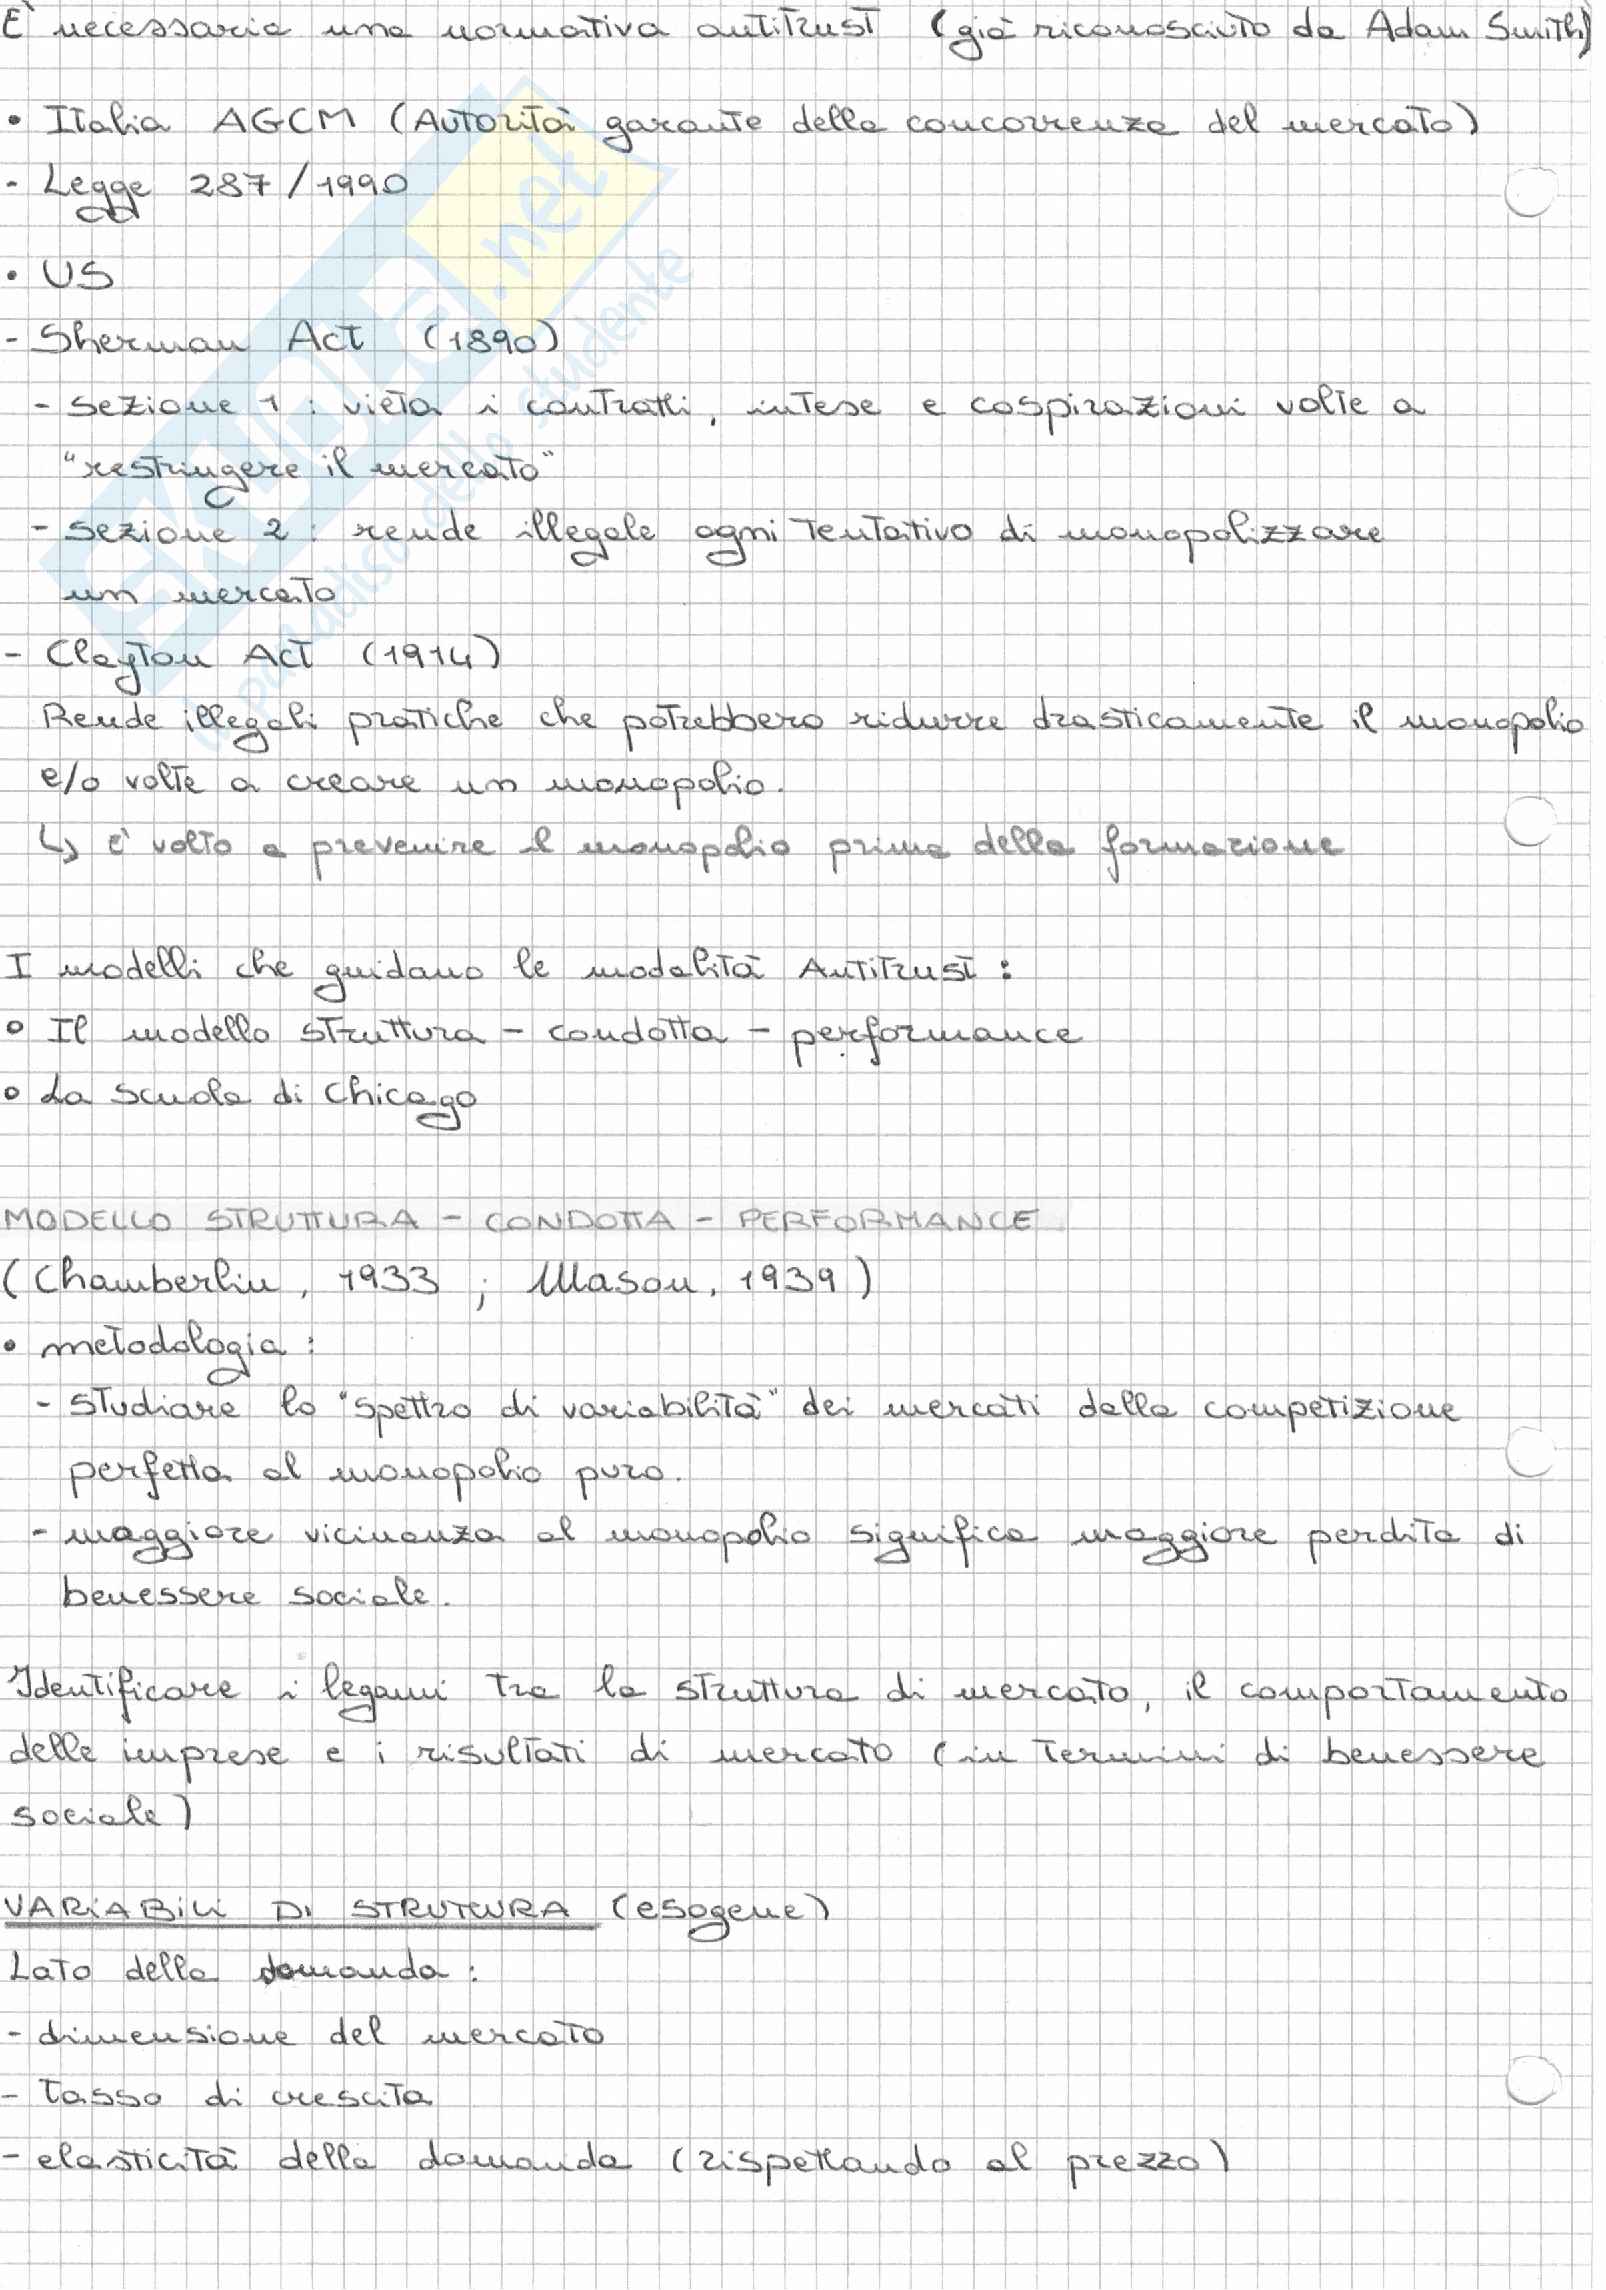 È necessaria una normativa antitrust (già riconosciuto da Adam Smith)
• Italia AGCM (Autorità garante della concorrenza del mercato)
- Legge 287/1990
• US
- Sherman Act (1890)
- sezione 1 : vieta i contratti, intese e cospirazioni volte a
"restringere il mercato"
- sezione 2 : rende illegale ogni tentativo di monopolizzare
un mercato
- Clayton Act (1914)
Rende illegali pratiche che potrebbero ridurre drasticamente il monopolio
e/o volte a creare un monopolio.
↳ è volto a prevenire il monopolio prima della formazione
I modelli che guidano le modalità Antitrust :
o Il modello struttura - condotta - performance
o La scuola di Chicago
MODELLO STRUTTURA - CONDOTTA - PERFORMANCE
(Chamberlin, 1933 ; Mason, 1939)
• metodologia :
- studiare lo "spettro di variabilità" dei mercati dalla competizione
perfetta al monopolio puro.
- maggiore vicinanza al monopolio significa maggiore perdita di
benessere sociale.
Identificare i legami tra la struttura di mercato, il comportamento
delle imprese e i risultati di mercato (in termini di benessere
sociale)
VARIABILI DI STRUTTURA (esogene)
Lato della domanda :
- dimensione del mercato
- tasso di crescita
- elasticità della domanda (rispettando al prezzo)
SKUOLA.net
il paradiso dello studente